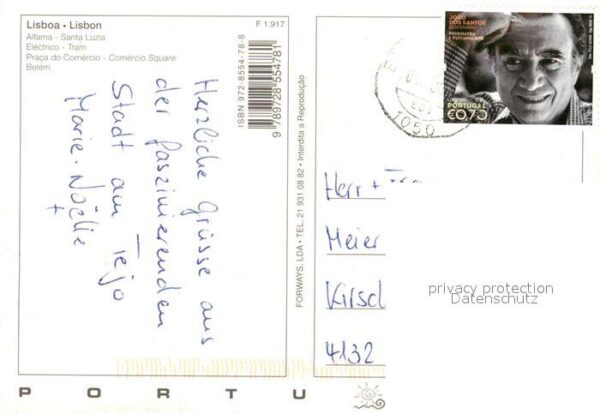 Lisboa • Lisbon
F 1.917
Alfama - Santa Luzia
Eléctrico - Tram
Praça do Comércio - Comércio Square
Belém
ISBN 972-8554-78-8
9 789728 554781
Herzliche Grüsse aus
der faszinierenden
Stadt am Tejo
Marie-Noëlle
FORWAYS, LDA • TEL. 21 931 08 82 • Interdita a Reprodução
JOÃO
DOS SANTOS
CENTENÁRIO
PSIQUIATRA E PSICANALISTA
PORTUGAL
€0,70
1050
Herr +
Meier
Kirsch
4132
privacy protection
Datenschutz
PORTU